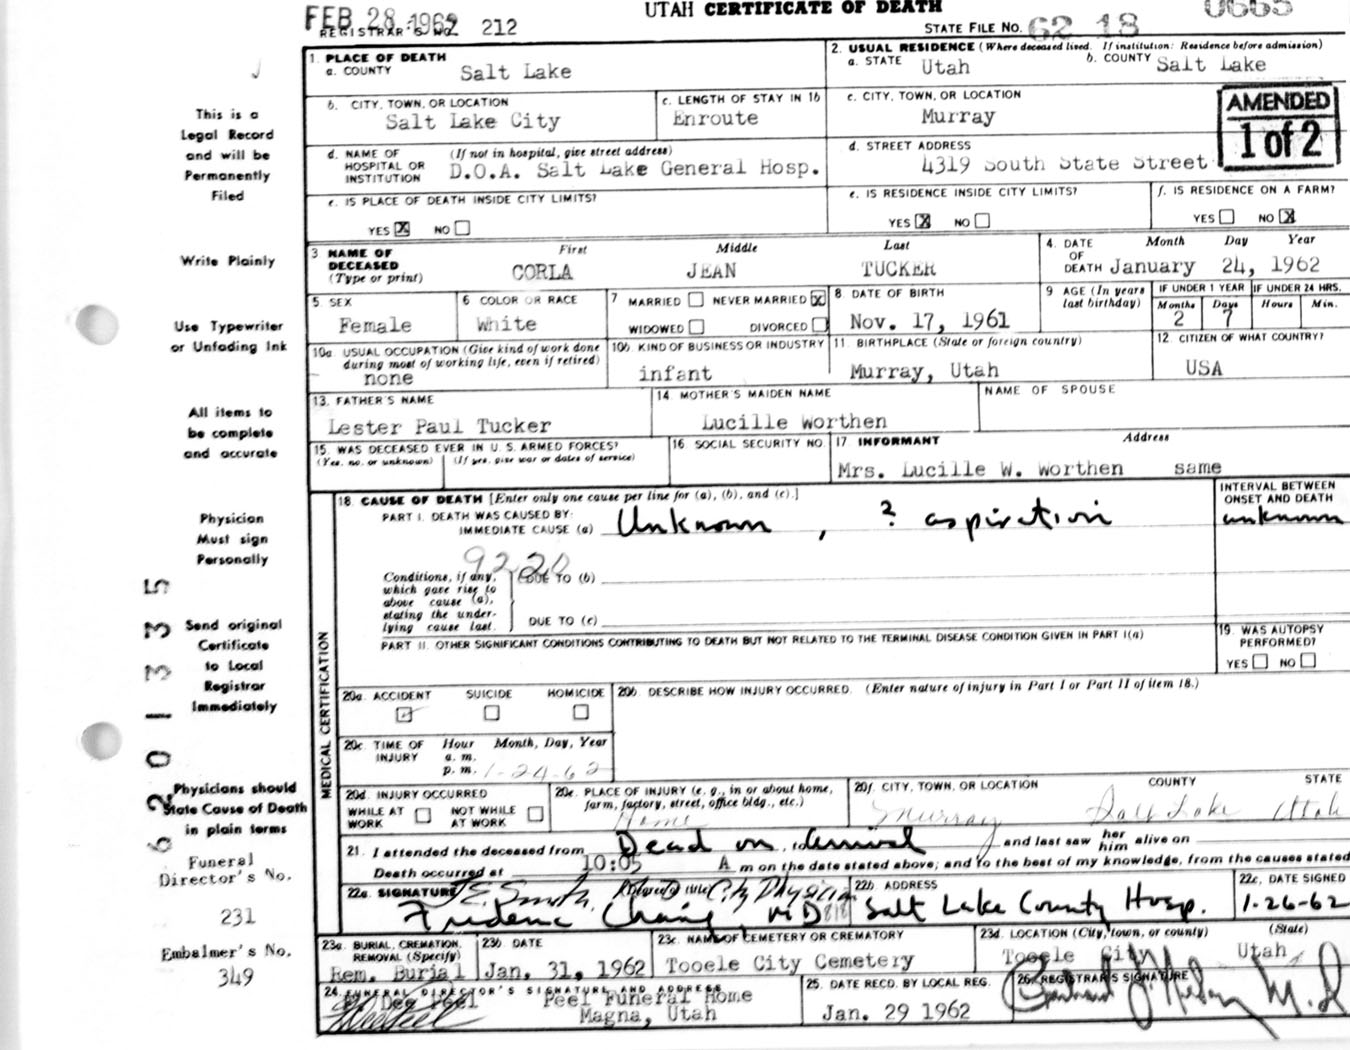 FEB 28 1962
REGISTRAR'S NO. 212
UTAH CERTIFICATE OF DEATH
STATE FILE NO. 62 18 0665
AMENDED
1 of 2
This is a
Legal Record
and will be
Permanently
Filed
Write Plainly
Use Typewriter
or Unfading Ink
All items to
be complete
and accurate
Physician
Must sign
Personally
Send original
Certificate
to Local
Registrar
Immediately
Physicians should
State Cause of Death
in plain terms
Funeral
Director's No.
231
Embalmer's No.
349
1. PLACE OF DEATH
a. COUNTY Salt Lake
2. USUAL RESIDENCE (Where deceased lived. If institution: Residence before admission)
a. STATE Utah b. COUNTY Salt Lake
b. CITY, TOWN, OR LOCATION
Salt Lake City
c. LENGTH OF STAY IN 1b
Enroute
c. CITY, TOWN, OR LOCATION
Murray
d. NAME OF HOSPITAL OR INSTITUTION (If not in hospital, give street address)
D.O.A. Salt Lake General Hosp.
d. STREET ADDRESS
4319 South State Street
e. IS PLACE OF DEATH INSIDE CITY LIMITS?
YES X NO
e. IS RESIDENCE INSIDE CITY LIMITS?
YES X NO
f. IS RESIDENCE ON A FARM?
YES NO X
3 NAME OF DECEASED (Type or print) First Middle Last
CORLA JEAN TUCKER
4. DATE OF DEATH Month Day Year
January 24, 1962
5 SEX
Female
6 COLOR OR RACE
White
7 MARRIED NEVER MARRIED X
WIDOWED DIVORCED
8 DATE OF BIRTH
Nov. 17, 1961
9 AGE (In years last birthday)
IF UNDER 1 YEAR IF UNDER 24 HRS.
Months Days Hours Min.
2 7
10a USUAL OCCUPATION (Give kind of work done during most of working life, even if retired)
none
10b KIND OF BUSINESS OR INDUSTRY
infant
11. BIRTHPLACE (State or foreign country)
Murray, Utah
12. CITIZEN OF WHAT COUNTRY?
USA
13. FATHER'S NAME
Lester Paul Tucker
14. MOTHER'S MAIDEN NAME
Lucille Worthen
NAME OF SPOUSE
15. WAS DECEASED EVER IN U. S. ARMED FORCES?
(Yes, no, or unknown) (If yes, give war or dates of service)
16 SOCIAL SECURITY NO.
17 INFORMANT Address
Mrs. Lucille W. Worthen same
18. CAUSE OF DEATH [Enter only one cause per line for (a), (b), and (c).]
INTERVAL BETWEEN ONSET AND DEATH
PART I. DEATH WAS CAUSED BY:
IMMEDIATE CAUSE (a) Unknown, ? aspiration
unknown
Conditions, if any, which gave rise to above cause (a), stating the underlying cause last.
DUE TO (b)
DUE TO (c)
PART II. OTHER SIGNIFICANT CONDITIONS CONTRIBUTING TO DEATH BUT NOT RELATED TO THE TERMINAL DISEASE CONDITION GIVEN IN PART I(a)
19. WAS AUTOPSY PERFORMED?
YES NO
MEDICAL CERTIFICATION
20a. ACCIDENT SUICIDE HOMICIDE
20b. DESCRIBE HOW INJURY OCCURRED. (Enter nature of injury in Part I or Part II of item 18.)
20c TIME OF INJURY Hour Month, Day, Year
a. m.
p. m. 1-24-62
20d INJURY OCCURRED
WHILE AT WORK NOT WHILE AT WORK
20e. PLACE OF INJURY (e. g., in or about home, farm, factory, street, office bldg., etc.)
Home
20f. CITY, TOWN, OR LOCATION COUNTY STATE
Murray Salt Lake Utah
21. I attended the deceased from Dead on arrival and last saw her him alive on
Death occurred at 10:05 A m on the date stated above; and to the best of my knowledge, from the causes stated
22a. SIGNATURE (Degree or title)
J.E. Smith, City Physician
Frederic Chang MD
22b. ADDRESS
Salt Lake County Hosp.
22c. DATE SIGNED
1-26-62
23a. BURIAL, CREMATION, REMOVAL (Specify)
Rem. Burial
23b DATE
Jan. 31, 1962
23c. NAME OF CEMETERY OR CREMATORY
Tooele City Cemetery
23d. LOCATION (City, town, or county) (State)
Tooele City Utah
24. FUNERAL DIRECTOR'S SIGNATURE AND ADDRESS
Dee Peel Peel Funeral Home
Magna, Utah
25. DATE RECD. BY LOCAL REG.
Jan. 29 1962
26. REGISTRAR'S SIGNATURE